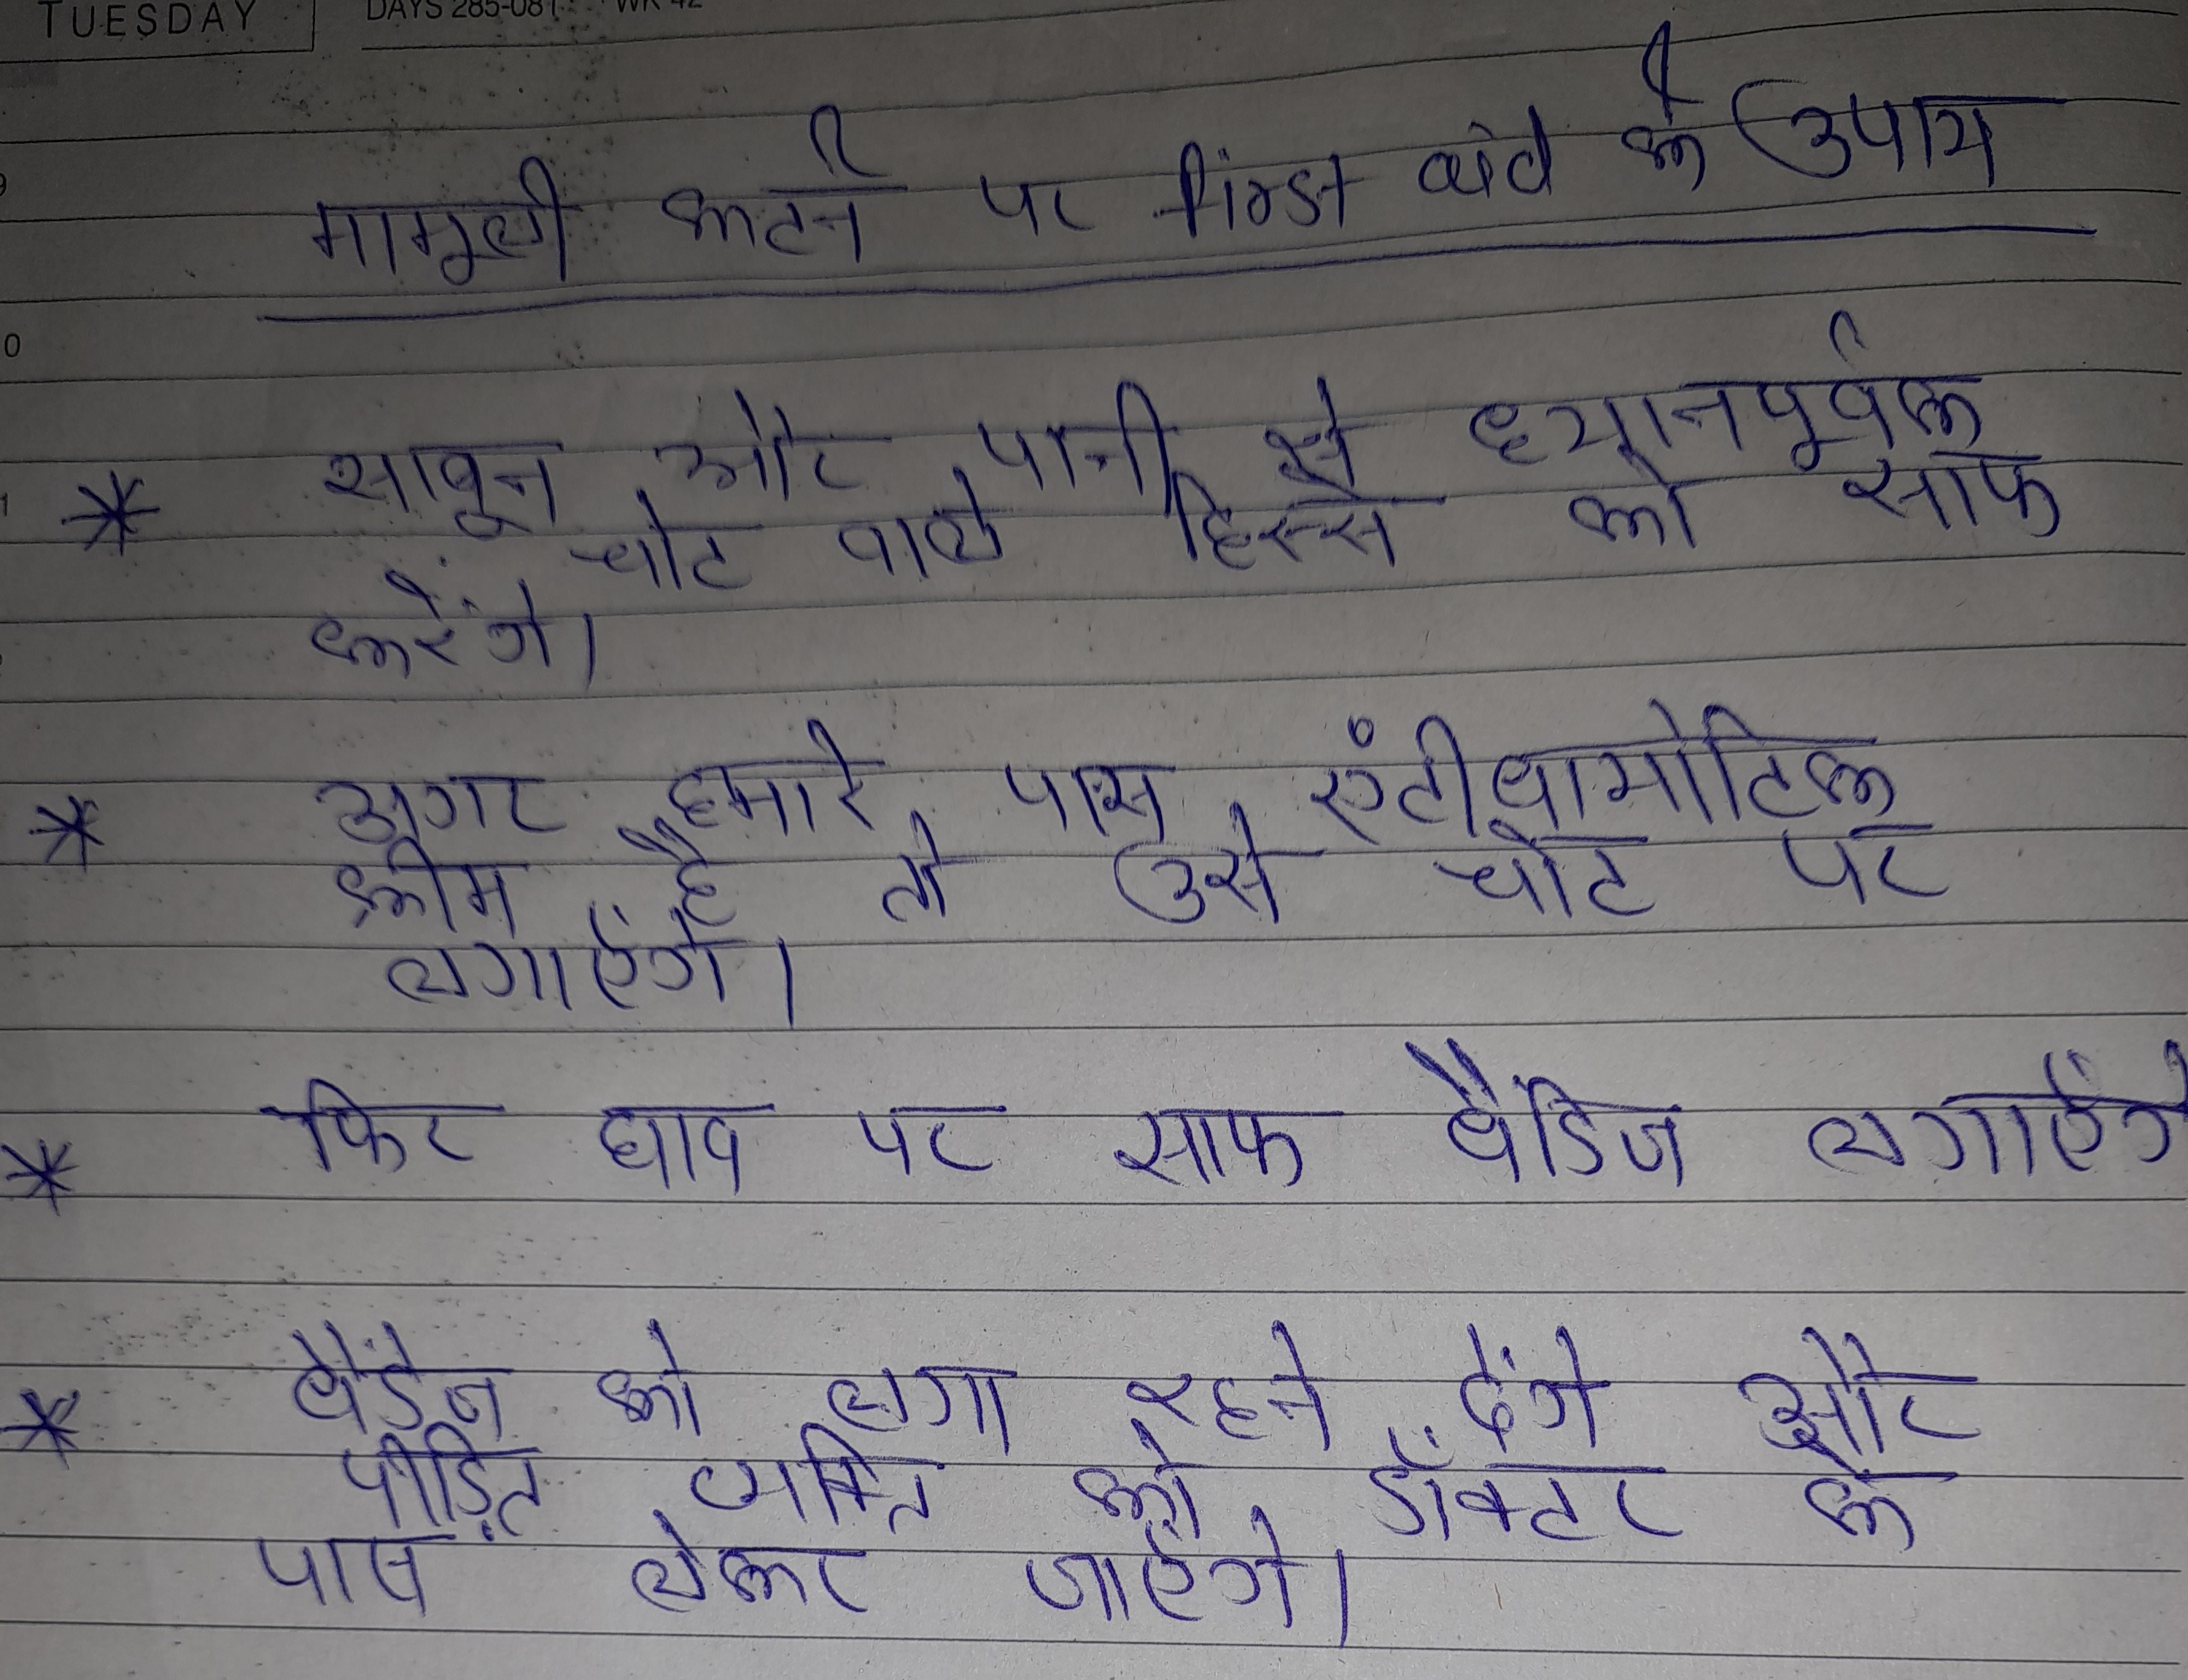 TUESDAY
DAYS 285-081 WK 42
मामूली कटने पर के उपाय
साबून और पानी से ध्यानपूर्वक
चोट वाले हिस्से को साफ
करेंगे।
अगर हमारे पास एंटीबायोटिक
क्रीम है तो उसे चोट पर
लगाएंगे।
फिर घाव पर साफ बैंडिज लगाएंगे
बैंडेज को लगा रहने देंगे और
पीड़ित व्यक्ति को डॉक्टर के
पास लेकर जाएंगे।